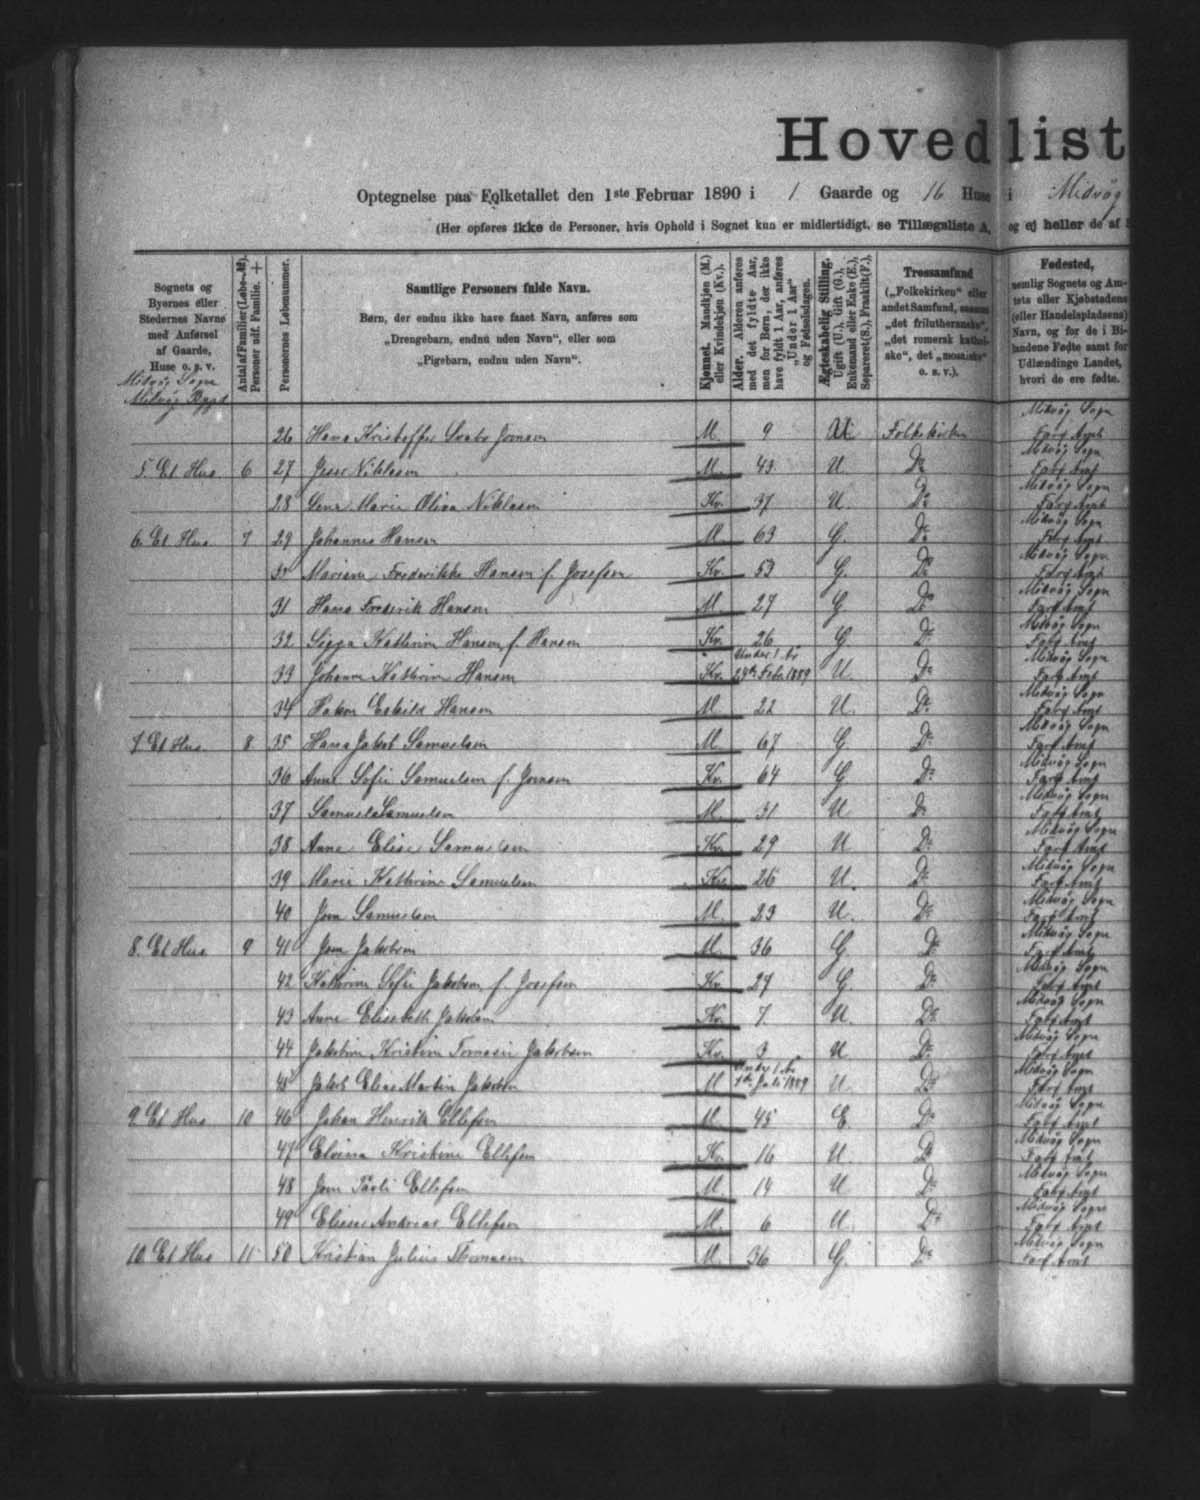 Hovedlist
Optegnelse paa Folketallet den 1ste Februar 1890 i 1 Gaarde og 16 Huse i Midvåg
(Her opføres ikke de Personer, hvis Ophold i Sognet kun er midlertidigt, se Tillægsliste A, og ej heller de af
Sognets og Byernes eller Stedernes Navne med Anførsel af Gaarde, Huse o. s. v.
Antal af Familier (Løbe-№). Personer udf. Familie. +
Personernes Løbenummer.
Samtlige Personers fulde Navn.
Børn, der endnu ikke have faaet Navn, anføres som „Drengebarn, endnu uden Navn", eller som „Pigebarn, endnu uden Navn".
Kjønnet. Mandkjøn (M.) eller Kvindekjøn (Kv.).
Alder. Alderen anføres med det fyldte Aar, men for Børn, der ikke have fyldt 1 Aar, anføres „Under 1 Aar" og Fødselsdagen.
Ægteskabelig Stilling. Ugift (U.), Gift (G.), Enkemand eller Enke (E.), Separeret (S.), Fraskilt (F.).
Trossamfund („Folkekirken" eller andet Samfund, saasom „det frilutheranske", „det romersk katholske", det „mosaiske" o. s. v.).
Fødested, nemlig Sognets og Amtets eller Kjøbstadens (eller Handelspladsens) Navn, og for de i Bilandene Fødte samt for Udlændinge Landet, hvori de ere fødte.
Midvåg Sogn
Midvåg Bygd
26 Hans Kristoffer Svabo Joensen M. 9 U. Folkekirken Midvåg Sogn Farø Amt
5. Et Hus 6 27 Jesse Niklasen M. 43 U Do Midvåg Sogn Farø Amt
28 Lena Marie Oliva Niklasen Kv. 37 U Do Midvåg Sogn Farø Amt
6. Et Hus 7 29 Johannes Hansen M. 63 G. Do Midvåg Sogn Farø Amt
30 Mariane Frederikke Hansen f. Josefsen Kv. 53 G. Do Midvåg Sogn Farø Amt
31 Hans Frederik Hansen M. 27 G Do Midvåg Sogn Farø Amt
32 Sigga Kathrine Hansen f. Hansen Kv. 26 G Do Midvåg Sogn Farø Amt
33 Johanne Kathrine Hansen Kv. Under 1 År Febr. 1889 U Do Midvåg Sogn Farø Amt
34 Hakon Eskild Hansen M. 22 U. Do Midvåg Sogn Farø Amt
7. Et Hus 8 35 Hans Jakob Samuelsen M. 67 G Do Midvåg Sogn Farø Amt
36 Anne Sofie Samuelsen f. Joensen Kv. 64 G Do Midvåg Sogn Farø Amt
37 Samuel Samuelsen M. 31 U Do Midvåg Sogn Farø Amt
38 Anne Elise Samuelsen Kv. 29 U Do Midvåg Sogn Farø Amt
39 Marie Kathrine Samuelsen Kv. 26 U. Do Midvåg Sogn Farø Amt
40 Joen Samuelsen M. 23 U. Do Midvåg Sogn Farø Amt
8. Et Hus 9 41 Joen Jakobsen M. 36 G Do Midvåg Sogn Farø Amt
42 Kathrine Sofie Jakobsen f. Josefsen Kv. 27 G. Do Midvåg Sogn Farø Amt
43 Anne Elisabeth Jakobsen Kv. 7 U. Do Midvåg Sogn Farø Amt
44 Jakobine Kristine Tomasia Jakobsen Kv. 3 U Do Midvåg Sogn Farø Amt
45 Jakob Elias Martin Jakobsen M Under 1 År Juli 1889 U Do Midvåg Sogn Farø Amt
9. Et Hus 10 46 Johan Henrik Ellefsen M. 45 E Do Midvåg Sogn Farø Amt
47 Elvina Kristine Ellefsen Kv. 16 U. Do Midvåg Sogn Farø Amt
48 Joen Påli Ellefsen M. 14 U Do Midvåg Sogn Farø Amt
49 Elieser Andreas Ellefsen M. 6 U. Do Midvåg Sogn Farø Amt
10. Et Hus 11 50 Kristian Julius Thomsen M. 36 G. Do Midvåg Sogn Farø Amt